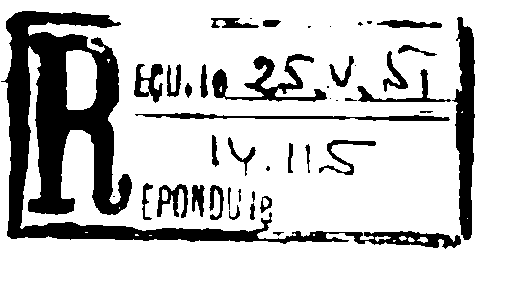 REÇU.le 25.V.51
14.115
REPONDU le